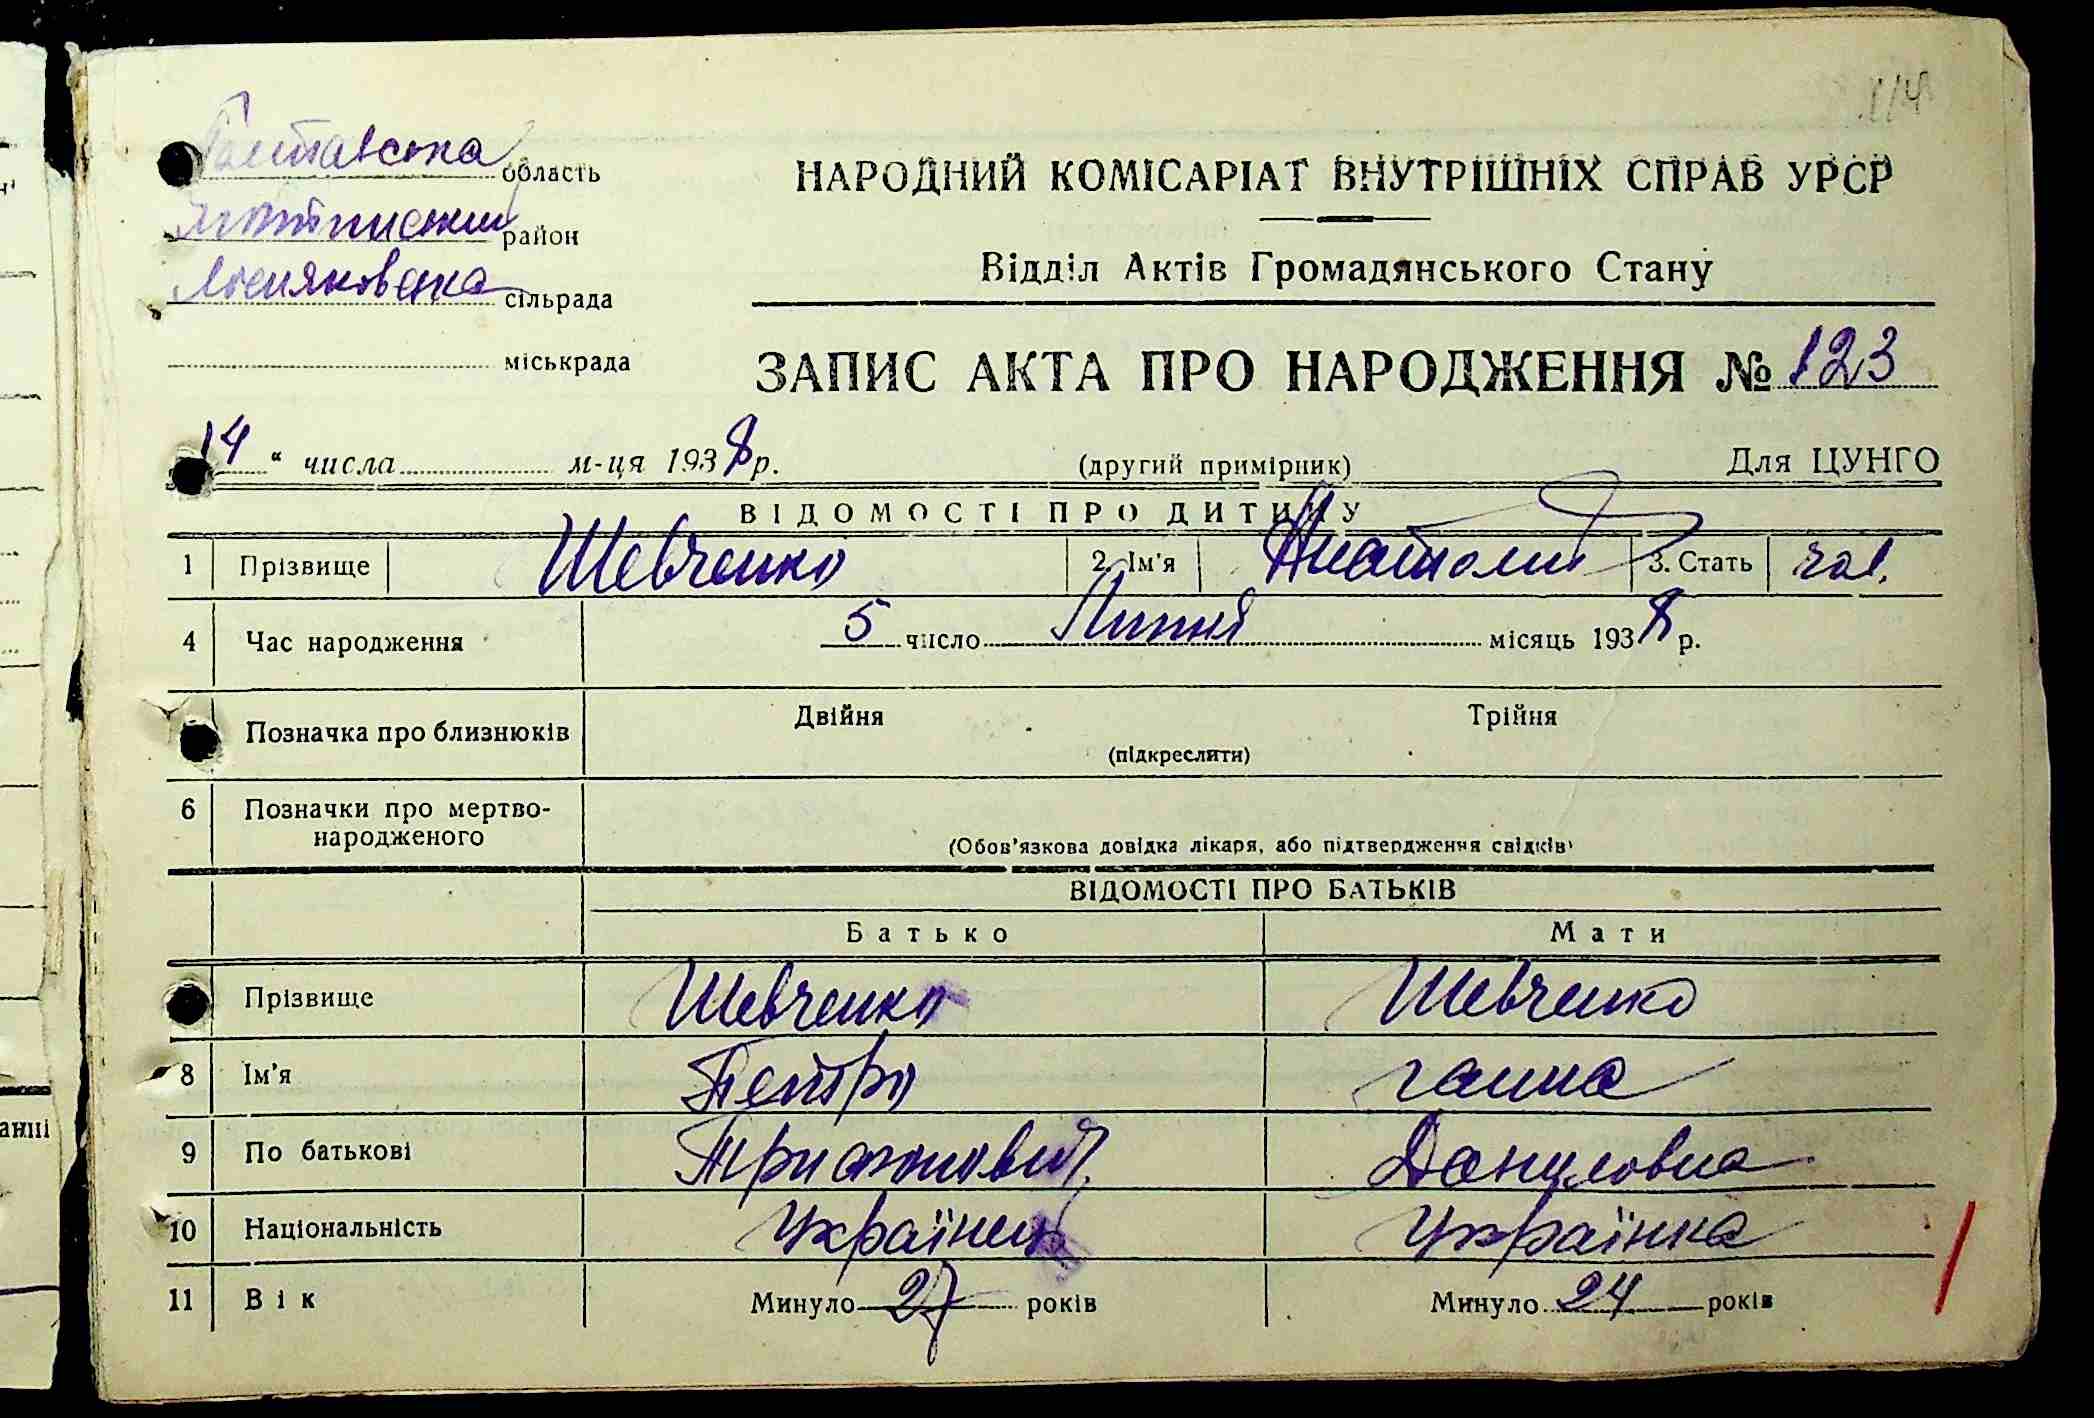 114
Полтавська область
НАРОДНИЙ КОМІСАРІАТ ВНУТРІШНІХ СПРАВ УРСР
район
Відділ Актів Громадянського Стану
сільрада
міськрада
ЗАПИС АКТА ПРО НАРОДЖЕННЯ № 123
14 “ числа м-ця 1938 р.
(другий примірник)
Для ЦУНГО
ВІДОМОСТІ ПРО ДИТИНУ
1 Прізвище Шевченко 2. Ім'я Анатолий 3. Стать чол.
4 Час народження 5 число Липня місяць 1938 р.
Позначка про близнюків Двійня Трійня
(підкреслити)
6 Позначки про мертво-
народженого
(Обов'язкова довідка лікаря, або підтвердження свідків)
ВІДОМОСТІ ПРО БАТЬКІВ
Батько Мати
Прізвище Шевченко Шевченко
8 Ім'я Петро Ганна
9 По батькові Трифонович Даниловна
10 Національність Українець Українка
11 Вік Минуло 27 років Минуло 24 років